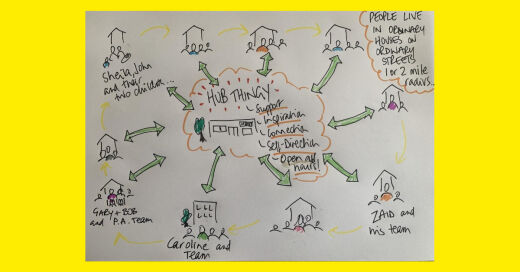 PEOPLE LIVE
IN ORDINARY
HOUSES ON
ORDINARY
STREETS
1 or 2 mile
radius...
Sheila, John
and their
two children...
HUB THINGY
Support
Inspiration
Connection
Self-Direction
Open all
hours!
GARY + BOB
and P.A. Team
Caroline and
Team
ZAID and
his team